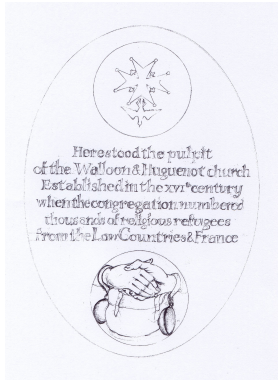 Here stood the pulpit
of the Walloon & Huguenot church
Established in the XVIth century
when the congregation numbered
thousands of religious refugees
from the Low Countries & France